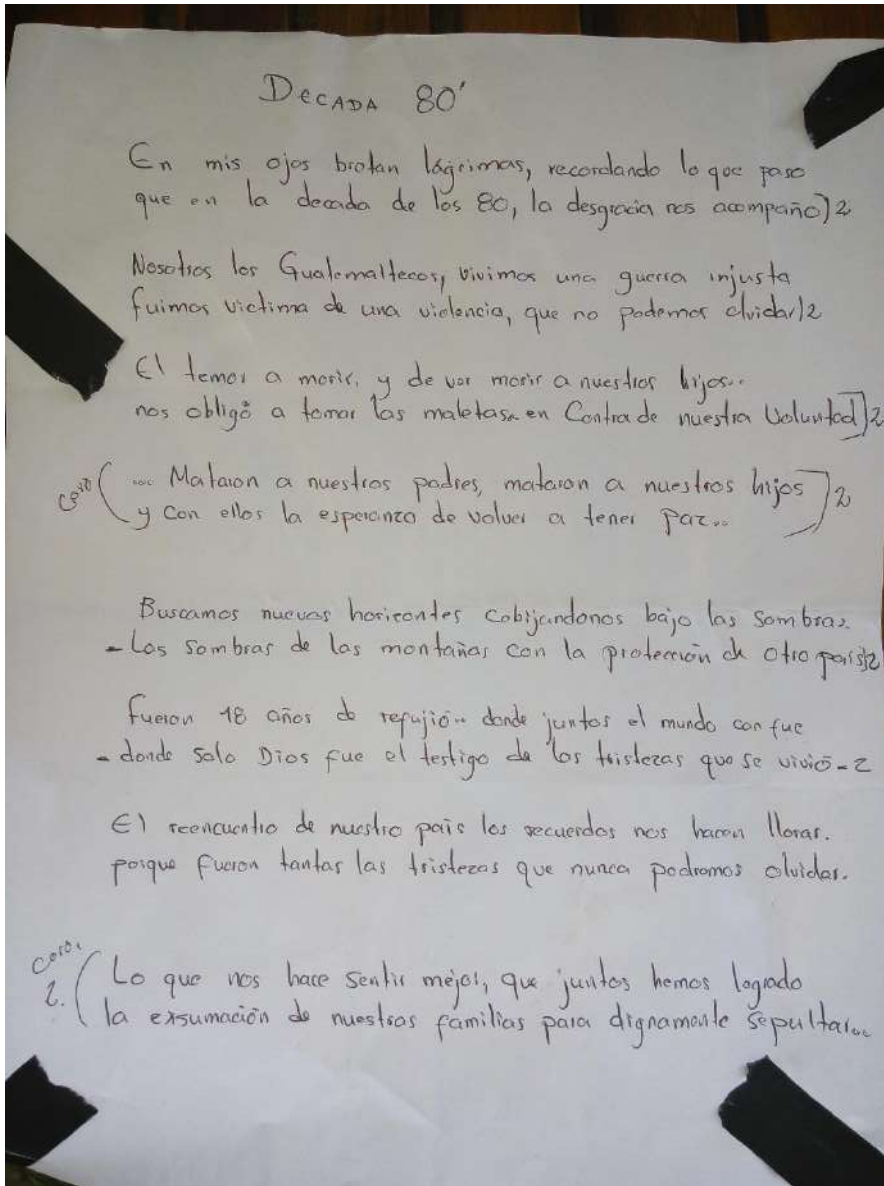 DECADA 80'
En mis ojos brotan lágrimas, recordando lo que paso
que en la decada de los 80, la desgracia nos acompaño)2
Nosotros los Guatemaltecos, vivimos una guerra injusta
fuimos victima de una violencia, que no podemos olvidar)2
El temor a morir, y de ver morir a nuestros hijos...
nos obligó a tomar las maletas.. en Contra de nuestra Voluntad]2
coro ( .... Mataron a nuestros padres, mataron a nuestros hijos
y con ellos la esperanza de volver a tener paz... ]2
Buscamos nuevas horizontes Cobijandonos bajo las sombras.
- Las sombras de las montañas con la protección de otro país)2
fueron 18 años de refujió.. donde juntos el mundo con fue
- donde solo Dios fue el testigo de las tristezas que se vivió-2
El reencuentro de nuestro país los recuerdos nos hacen llorar.
porque fueron tantas las tristezas que nunca podremos olvidar.
coro. 2. ( Lo que nos hace sentir mejor, que juntos hemos logrado
la exsumación de nuestras familias para dignamente sepultar...